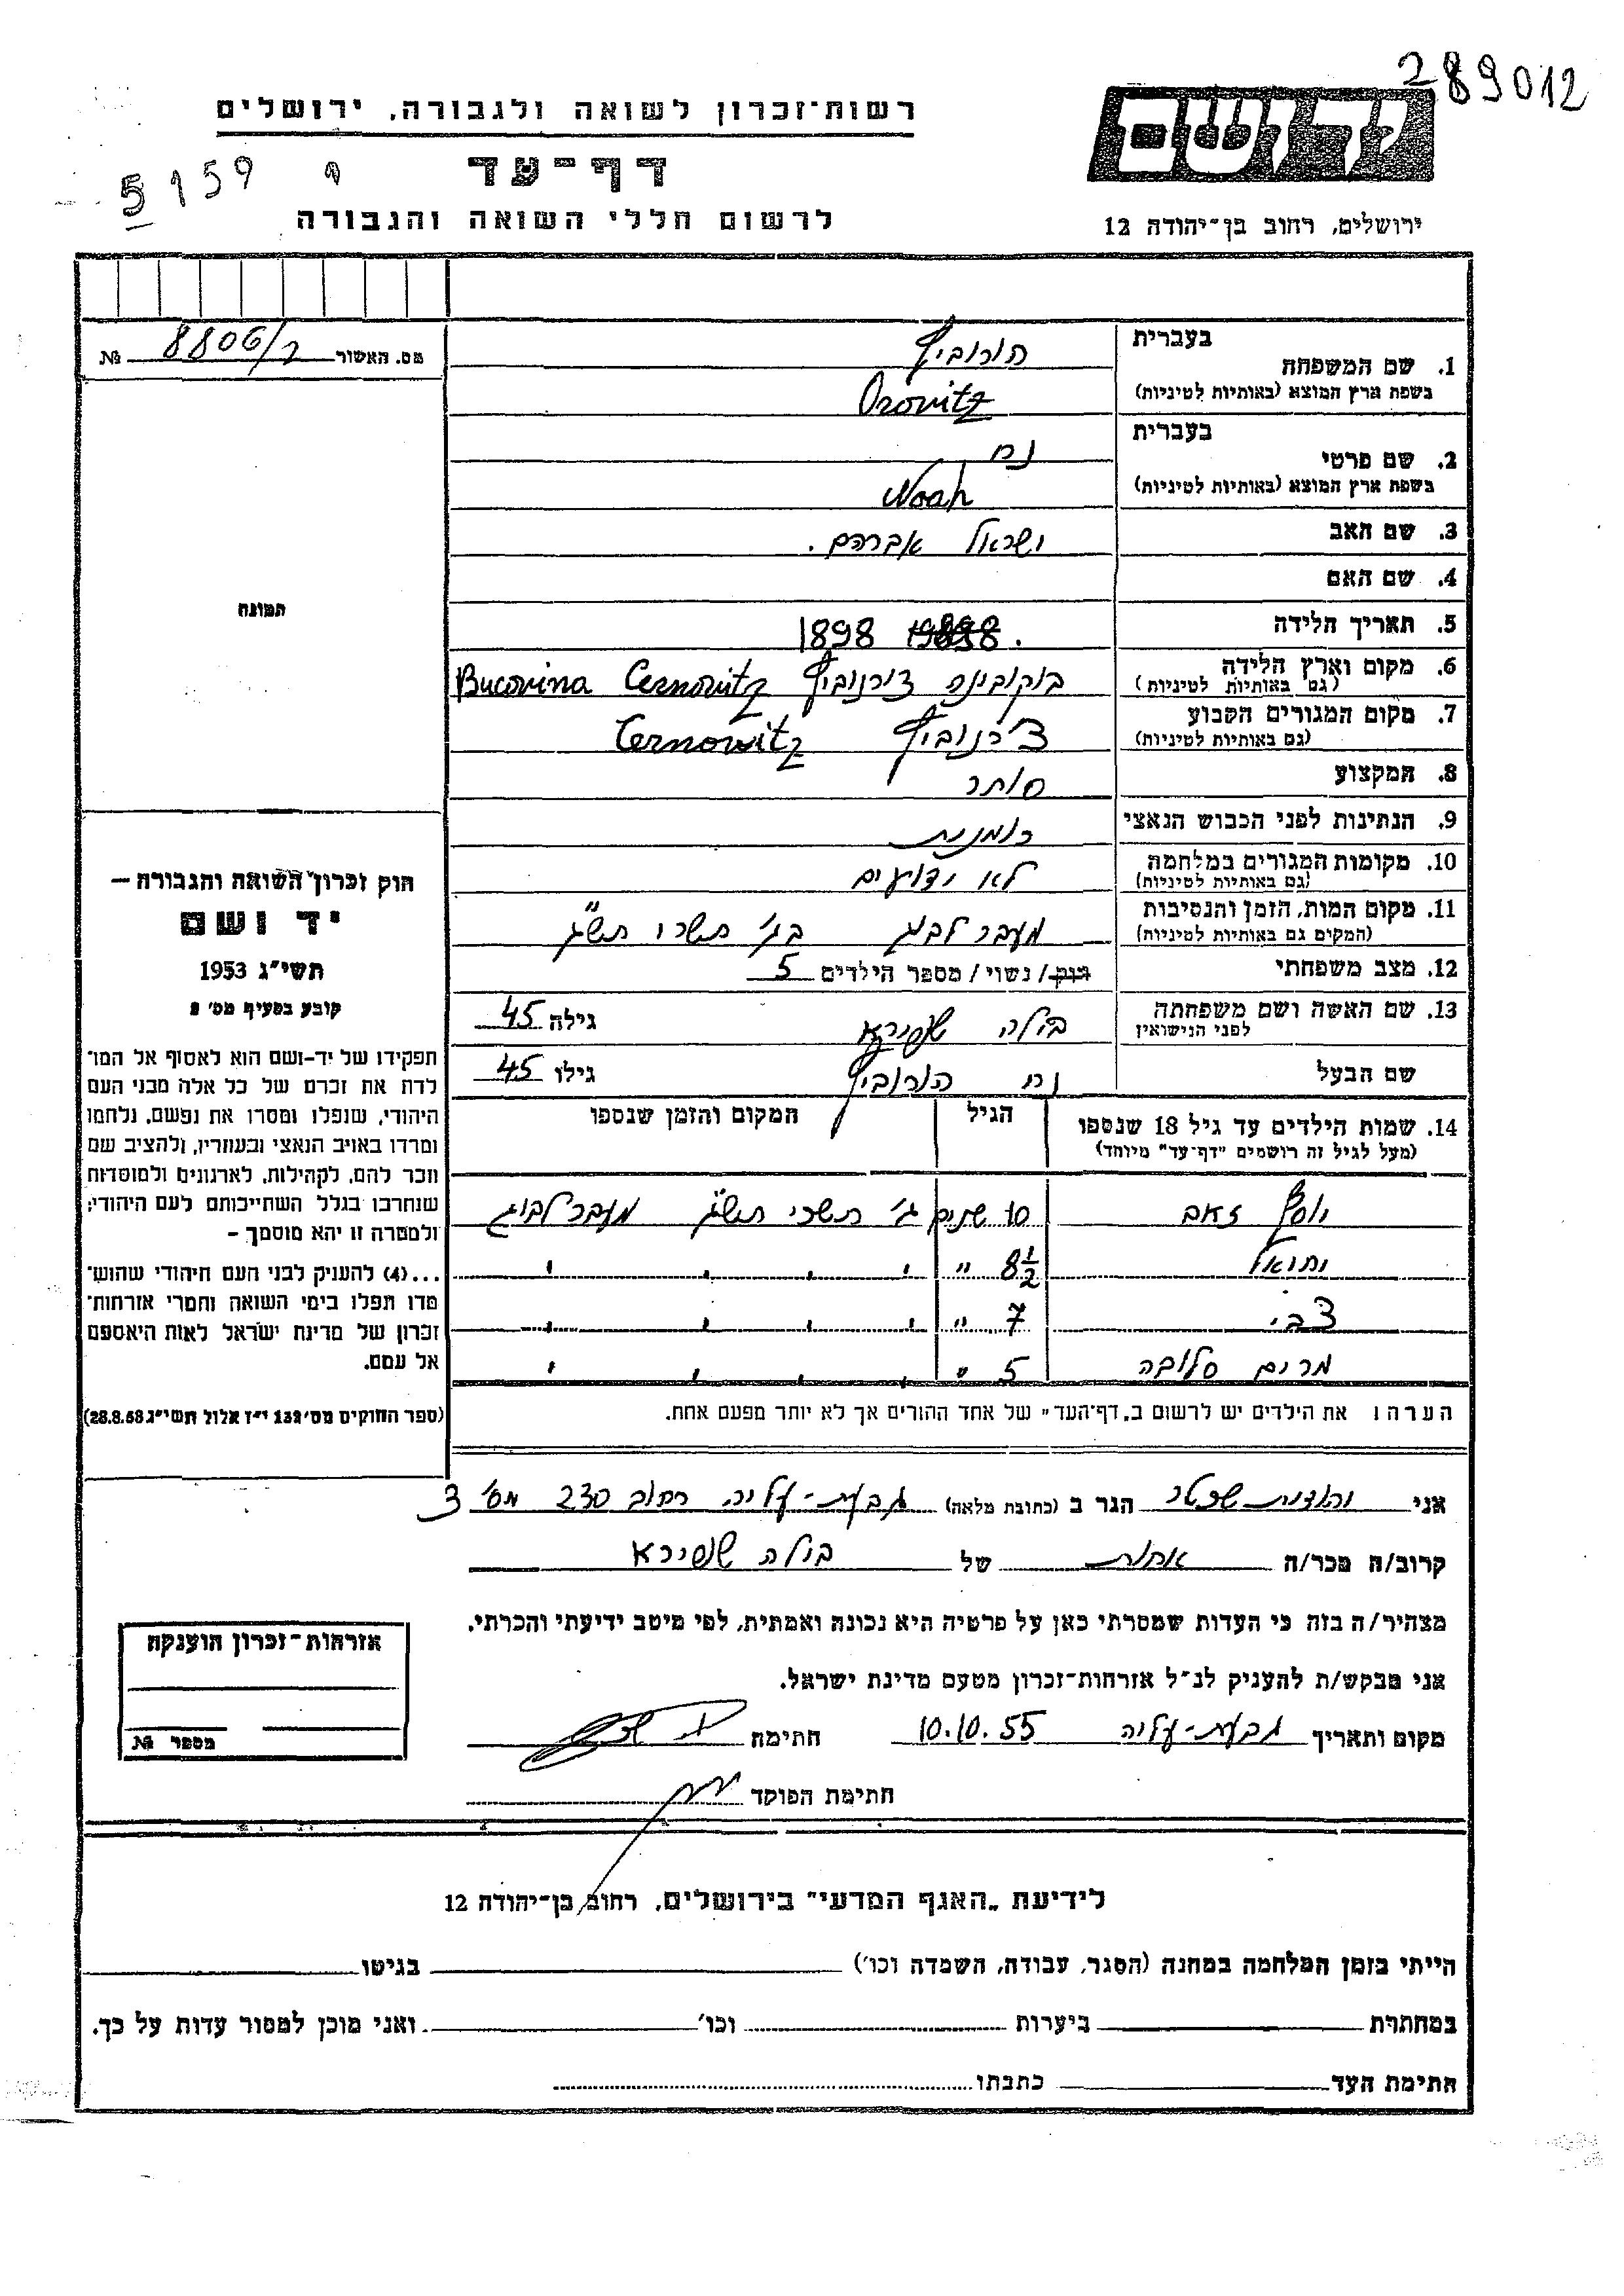 289012
רשות־זכרון לשואה ולגבורה, ירושלים
ידושם
5159
דף־עד
לרשום חללי השואה והגבורה
ירושלים, רחוב בן־יהודה 12
מס. האשור 8806/2 №
תמונה
חוק זכרון השואה והגבורה –
יד ושם
תשי״ג 1953
קובע בסעיף מס׳ 2
תפקידו של יד-ושם הוא לאסוף אל המו־
לדת את זכרם של כל אלה מבני העם
היהודי, שנפלו ומסרו את נפשם, נלחמו
ומרדו באויב הנאצי ובעוזריו, ולהציב שם
וזכר להם, לקהילות, לארגונים ולמוסדות
שנחרבו בגלל השתייכותם לעם היהודי;
ולמטרה זו יהא מוסמך –
...(4) להעניק לבני העם היהודי שהוש־
מדו ונפלו בימי השואה והמרי אזרחות־
זכרון של מדינת ישראל לאות היאספם
אל עמם.
(ספר החוקים מס׳ 132 י״ז אלול תשי״ג 28.8.53)
בעברית
1. שם המשפחה הורוביץ
בשפת ארץ המוצא (באותיות לטיניות) Orovitz
בעברית
2. שם פרטי נח
בשפת ארץ המוצא (באותיות לטיניות) Noah
3. שם האב ישראל אברהם.
4. שם האם
5. תאריך הלידה 1898
6. מקום וארץ הלידה בוקובינה צ'רנוביץ Bucovina Cernovitz
(גם באותיות לטיניות)
7. מקום המגורים הקבוע צ'רנוביץ Cernowitz
(גם באותיות לטיניות)
8. המקצוע סוחר
9. הנתינות לפני הכבוש הנאצי רומנית
10. מקומות המגורים במלחמה לא ידועים
(גם באותיות לטיניות)
11. מקום המות, הזמן והנסיבות מעבר לבוג בג' תשרי תש"ג
(המקום גם באותיות לטיניות)
12. מצב משפחתי רווק/ נשוי/ מספר הילדים 5
13. שם האשה ושם משפחתה בולה שפירא גילה 45
לפני הנישואין
שם הבעל נח הורוביץ גילו 45
14. שמות הילדים עד גיל 18 שנספו הגיל המקום והזמן שנספו
(מעל לגיל זה רושמים ״דף־עד״ מיוחד)
יוסף זאב 10 שנים ג' תשרי תש"ג מעבר לבוג
יחואל 8½ " ' ' ' '
צבי 7 " ' ' ' '
מרים סלובה 5 " ' ' ' '
הערה: את הילדים יש לרשום ב„דף־העד״ של אחד ההורים אך לא יותר מפעם אחת.
אני יהודית שכטר הגר ב (כתובת מלאה) גבעת-עליה רחוב 230 מס' 3
קרוב/ה מכר/ה אחות של בולה שפירא
מצהיר/ה בזה כי העדות שמסרתי כאן על פרטיה היא נכונה ואמתית, לפי מיטב ידיעתי והכרתי.
אני מבקש/ת להעניק לנ״ל אזרחות־זכרון מטעם מדינת ישראל.
מקום ותאריך גבעת-עליה 10.10.55 חתימה
חתימת הפוקד
אזרחות־זכרון הוענקה
מספר №
לידיעת „האגף המדעי״ בירושלים, רחוב בן־יהודה 12
הייתי בזמן המלחמה במחנה (הסגר, עבודה, השמדה וכו׳) בגיטו
במחתרת ביערות וכו׳ ואני מוכן למסור עדות על כך.
חתימת העד כתבתו